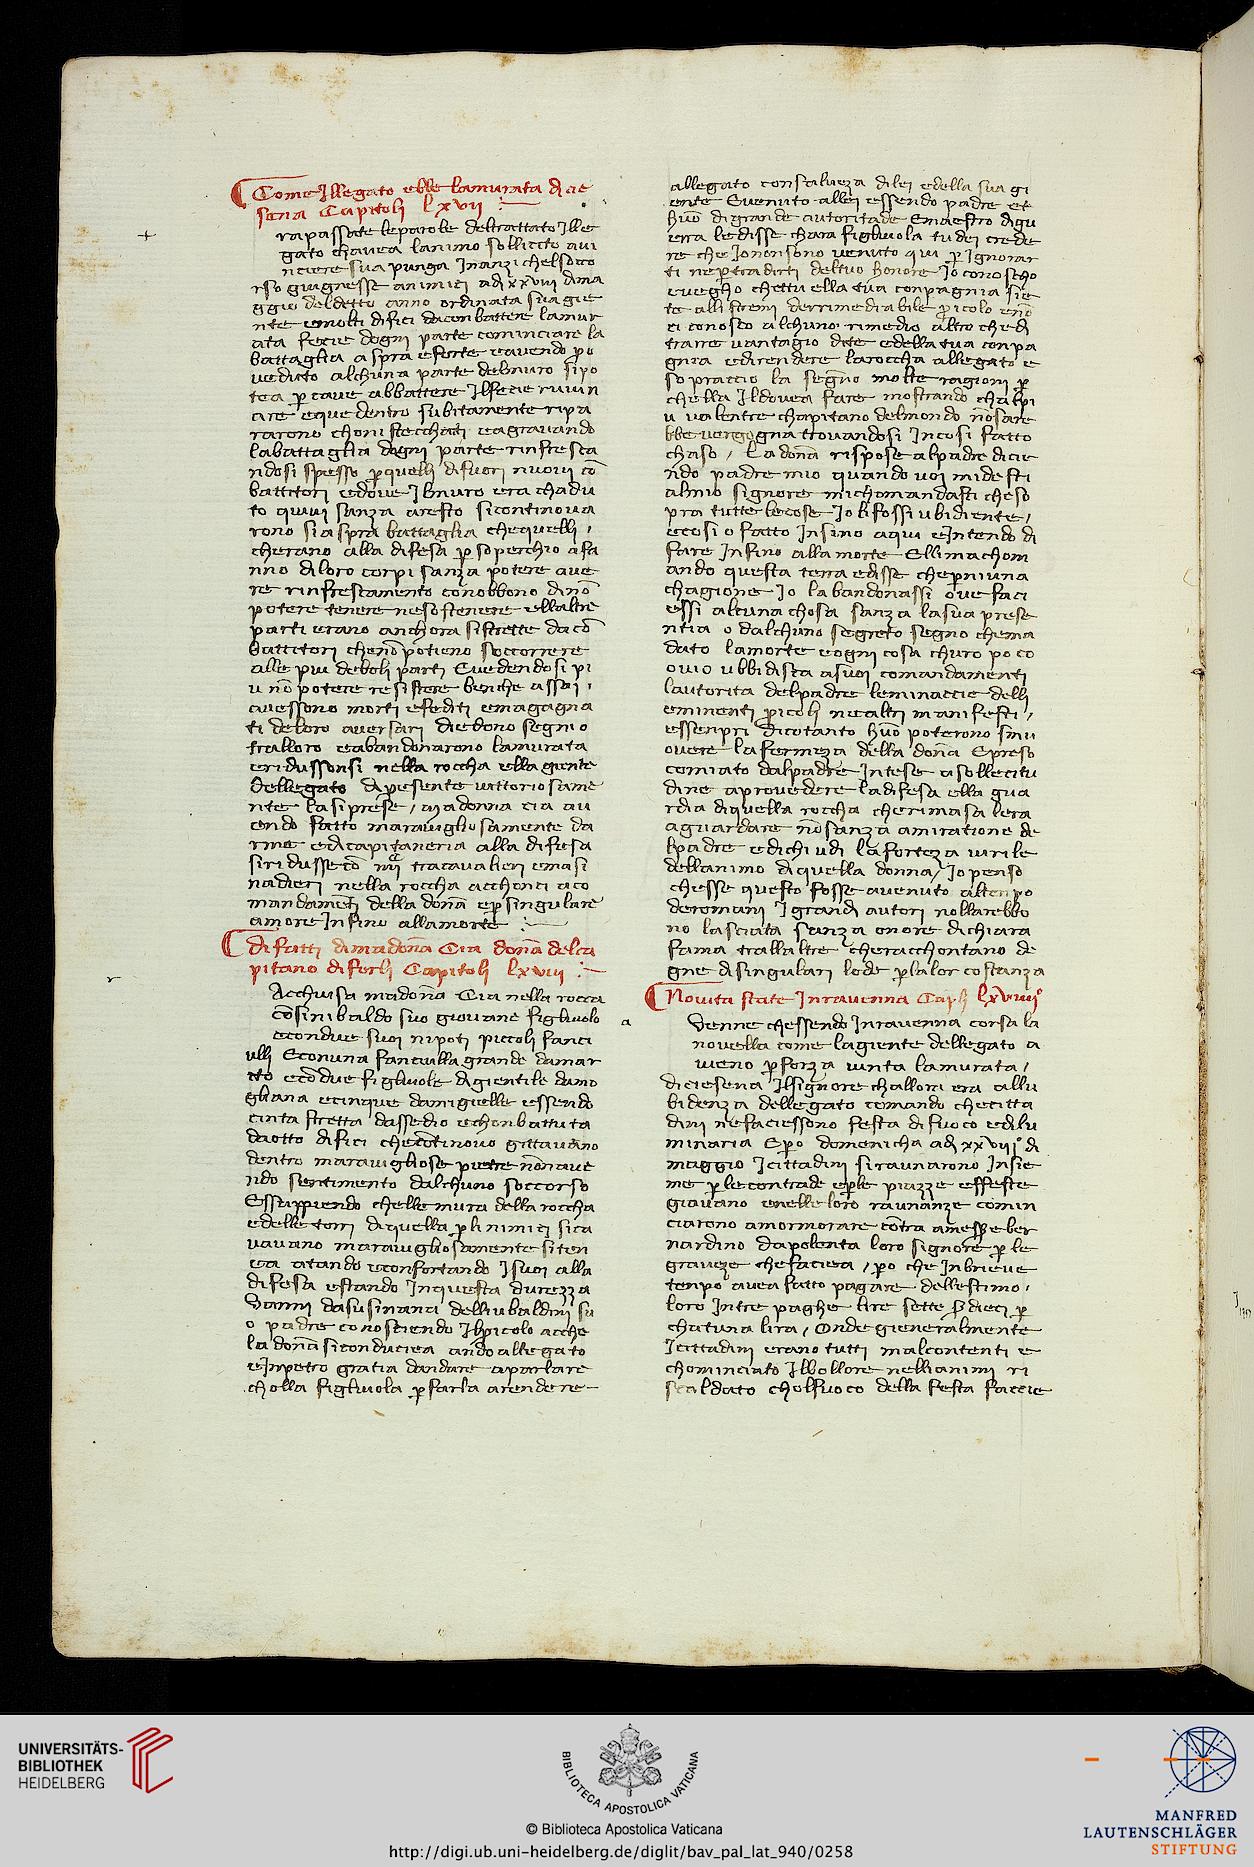 Come Illegato ebbe lamurata di cie
sena Capitolj lxvii
rapassate leparole deltrattato Ille
gato chavea lanimo sollicito avi
nciere sua punga Inanzi chelsocco
rso giugnesse animici adj xxviii dima
ggio deldetto anno ordinata sua gie
nte emolti difici dacombattere lamur
ata fecie dogni parte cominciare la
battaglia aspra eforte eavendo pro
veduto alchuna parte delmuro sipo
tea per cave abbattere Ilfecie ruvin
are eque dentro subitamente ripa
rarono chonistecchati eagravando
labattaglia dogni parte rinfresca
ndosi spesso per quelli difuori nuovi cō
battitori edove Ilmuro era chadu
to quivi sanza aresto sicontinova
rono si aspra battaglia chequelli
cherano alla difesa per soperchio afa
nno diloro corpi sanza potere ave
re rinfrescamento conobbono dinō
potere tenere nesostenere ellaltre
parti erano anchora sistrette dacō
battitori chenō potieno soccorrere
alle piu deboli parti Evedendosi pi
u nō potere resistere benche assai
avessono morti efediti emagagna
ti deloro aversari diedono segnio
tralloro eabandonarono lamurata
eridussonsi nella roccha ella giente
dellegato dipresente vattoriosame
nte lasiprese / Madonna cia av
endo fatto maravigliosamente da
rme edicapitaneria alla difesa
siridusse cō iiij tracavalieri emasi
nadieri nella roccha acchonci aco
mandameti della donā eper singulare
amore Infino allamorte
di fatti di madonā Cia donā delca
pitano diforlj Capitolj lxviii
Acchiusa madonā Cia nella rocca
cō sinibaldo suo giovane figliuolo
econdue suoi nipoti piccoli fanci
ulli Econuna fanciulla grande damar
ito ecō due figliuole digientile damo
gliana ecinque damigielle essendo
cinta stretta dassedio echonbattuta
daotto difici checōtinovo gittavano
dentro maravigliose pietre nōn ave
ndo sentimento dalchuno soccorso
Essappiendo chelle mura della roccha
edelle torri diquella per linimici sica
vavano maravigliosamente siten
ea atando econfortando Isuoi alla
difesa estando Inquesta durezza
Vanni dasusinana delliubaldini su
o padre conosciendo Ilpicolo acche
la donā siconduciea andoallegato
eInpetro gratia dandare aparlare
cholla figliuola per farla arendere
allegato consalveza dilei edella sua gi
ente Evenuto allei essendo padre et
huō digrande autoritade Emaestro digu
erra ledisse chara figliuola tu dei crede
re che Iononsono venuto qui per Ignorar
ti ne per tradirti deltuo honore Io conoscho
eveggho chettu ella tua conpagnia sie
te alli stremi derrimediabile pericolo enō
ci conosco alchuno rimedio altro chedi
trarre vantagio dite edella tua conpa
gnia edirendere laroccha allegato e
sopraccio la segno molte ragioni per
chella Ildovea fare mostrando chalpi
u valentre chapitano delmondo nōsare
bbe vergogna trovandosi Incosi fatto
chaso / La donā rispose alpadre dicie
ndo padre mio quando voi midesti
almio signore michomandasti cheso
pra tutte lecose Iolifossi ubidiente /
ecosi o fatto Insino aqui eIntendo di
fare Infino alla morte Ellimachom
ando questa terra edisse cheperniuna
chagione Io labandonassi ove faci
essi alcuna chosa sanza lasua prese
ntia o dalchuno segreto segno chema
dato lamorte eogni cosa churo poco
ovio ubbidisca asuoi comandamenti
lautorita delpadre leminaccie delli
eminenti pericoli nealtri manifesti /
essenpri dicotanto huō poterono smu
overe lafermeza della donā Epreso
comiato dalpadre Intese asollecitu
dine aprovedere ladifesa ella gua
rdia diquella roccha cherimasa lera
aguardare nōsanza amiratione de
lpadre edichi udi lafortezza virile
dellanimo diquella donna / Io penso
chesse questo fosse avenuto altenpo
deromani Igrandi autori nollarebbo
no lasciata sanza onore dichiara
fama trallaltre cheracchontano de
gne disingulari lode per lalor costanza
Novita state Inravenna Caplj lxviiijº
Venne chessendo Inravenna corsa la
novella come lagiente dellegato a
vieno per forza vinta lamurata /
diciesena Ilsignore challora era allu
bidenza dellegato comando checitta
dini nefaciessono festa difuoco edilu
minaria Epero domenicha adj xxviijº di
maggio Icittadini siraunarono Insie
me per lecontrade eperle piazze effeste
giavano enelleloro raunanze comin
ciarono amormorare cōtra amesser ber
nardino dapolenta loro signore per le
graveze chefaciea / pero che Inbrieve
tenpo avea fatto pagare dellestimo
loro Intre paghe lire sette ß dieci per
chatuna lira / Onde gieneralmente
Icittadini erano tutti malcontenti e
chominciato Ilbollore nellianimi ri
scaldato cholfuoco della festa faccie
UNIVERSITÄTS-
BIBLIOTHEK
HEIDELBERG
BIBLIOTECA APOSTOLICA VATICANA
© Biblioteca Apostolica Vaticana
http://digi.ub.uni-heidelberg.de/diglit/bav_pal_lat_940/0258
MANFRED
LAUTENSCHLÄGER
STIFTUNG